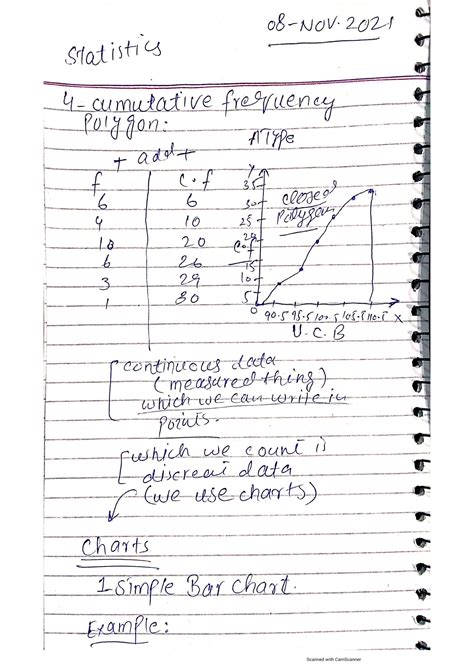 08-NOV.2021
Statistics
4-cumutative frequency
Polygon:
A Type
+ add +
f c.f
6 6
4 10
10 20
6 26
3 29
1 30
Y
35
30
25
20
C.f
15
10
5
0
closed
Polygon
90.5 95.5 100.5 105.5 110.5 X
U.C.B
continuous data
(measured thing)
which we can write in
points.
which we count is
discreat data
(we use charts)
Charts
1-Simple Bar Chart.
Example:
Scanned with CamScanner